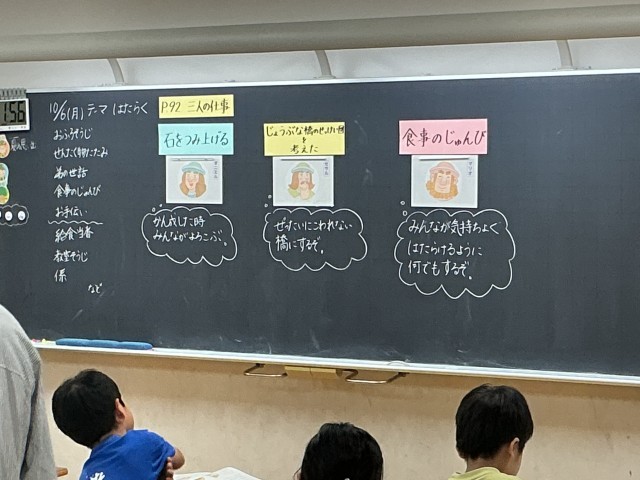 10/6(月) テーマ はたらく
おふろそうじ
せんたく物たたみ
弟の世話
食事のじゅんび
お手伝い
給食当番
教室そうじ
係
など
P.92 三人の仕事
石をつみ上げる
かん成した時
みんながよろこぶ。
じょうぶな橋の
を
考えた
ぜったいにこわれない
橋にするぞ。
食事のじゅんび
みんなが気持ちよく
はたらけるように
何でもするぞ。